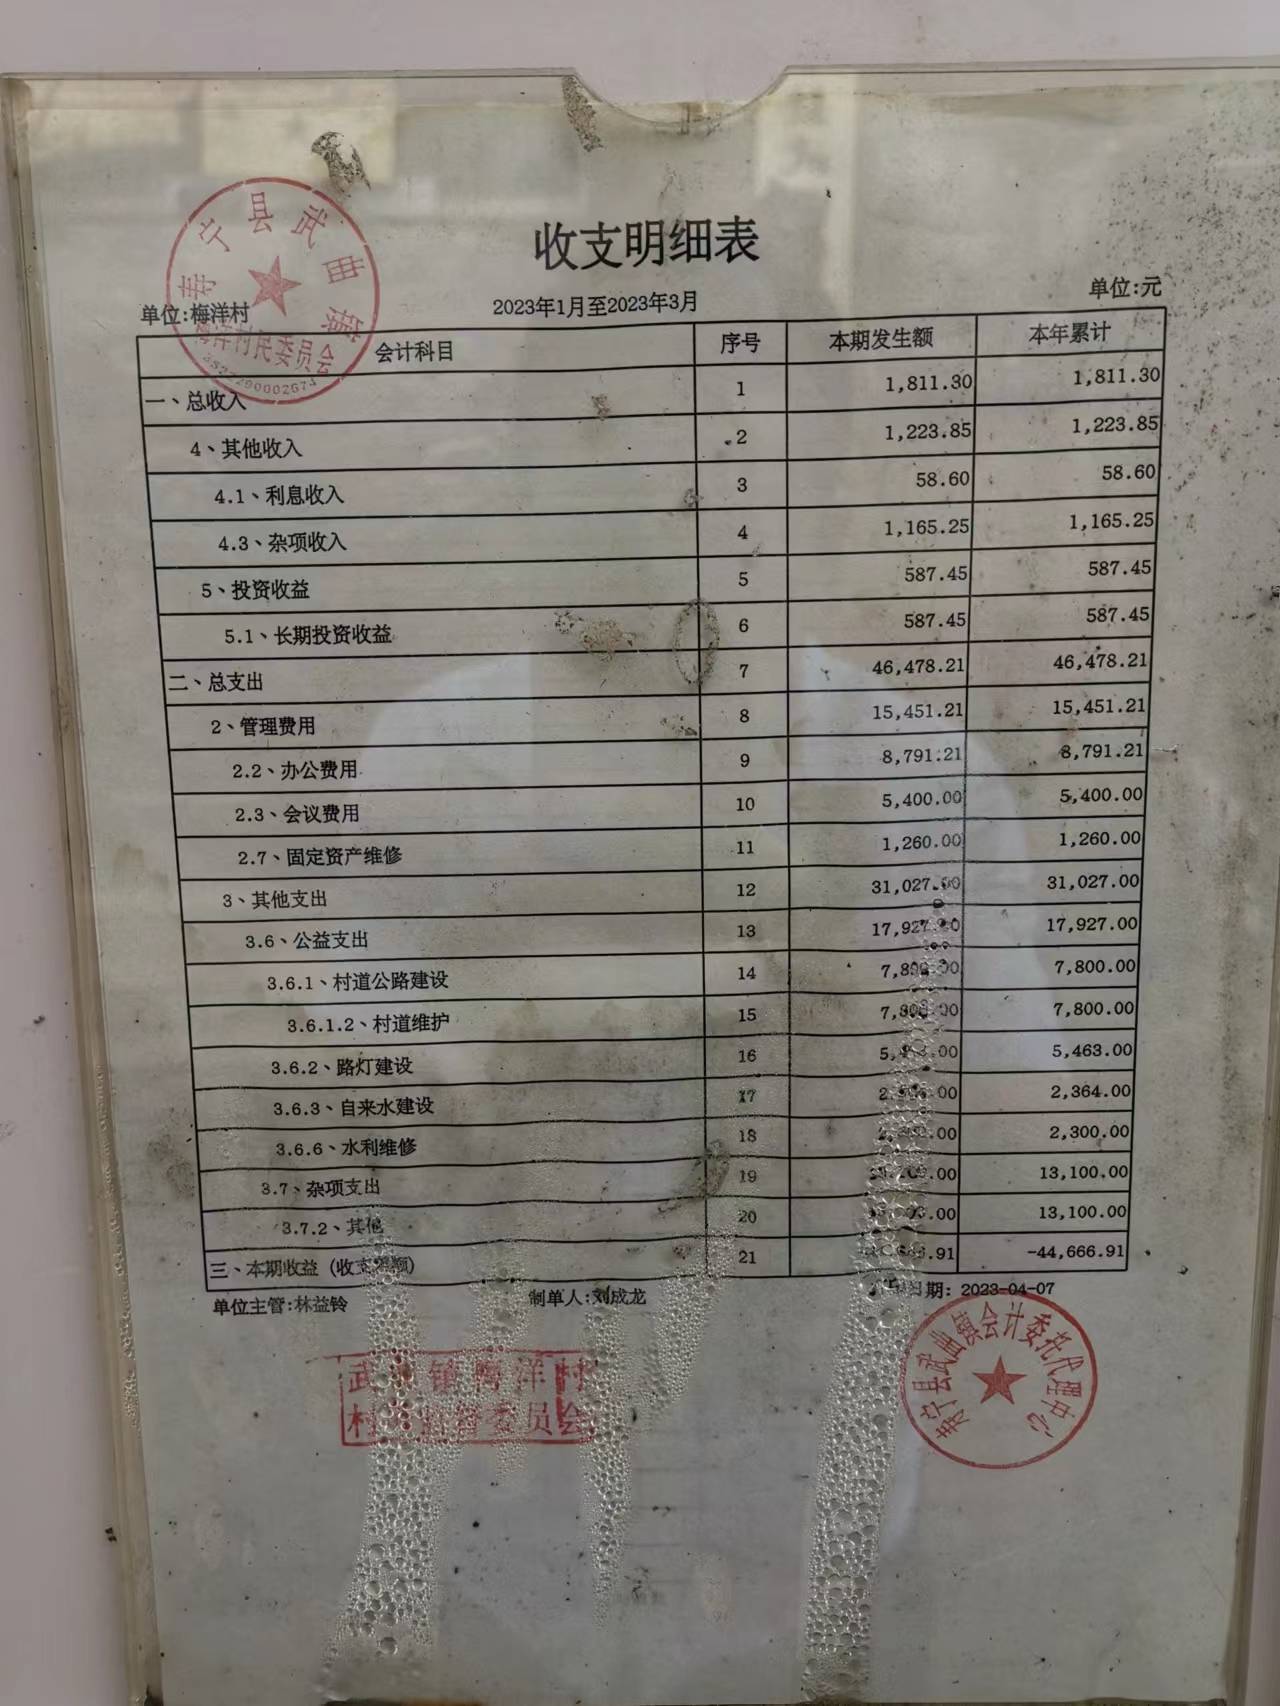 收支明细表
寿宁县武曲镇
梅洋村民委员会
单位:梅洋村 2023年1月至2023年3月 单位:元
会计科目 序号 本期发生额 本年累计
一、总收入 1 1,811.30 1,811.30
4、其他收入 2 1,223.85 1,223.85
4.1、利息收入 3 58.60 58.60
4.3、杂项收入 4 1,165.25 1,165.25
5、投资收益 5 587.45 587.45
5.1、长期投资收益 6 587.45 587.45
二、总支出 7 46,478.21 46,478.21
2、管理费用 8 15,451.21 15,451.21
2.2、办公费用 9 8,791.21 8,791.21
2.3、会议费用 10 5,400.00 5,400.00
2.7、固定资产维修 11 1,260.00 1,260.00
3、其他支出 12 31,027.00 31,027.00
3.6、公益支出 13 17,927.00 17,927.00
3.6.1、村道公路建设 14 7,800.00 7,800.00
3.6.1.2、村道维护 15 7,800.00 7,800.00
3.6.2、路灯建设 16 5,463.00
3.6.3、自来水建设 17 2,364.00
3.6.6、水利维修 18 2,300.00
3.7、杂项支出 19 13,100.00
3.7.2、其他 20 13,100.00
三、本期收益 (收支 21 -44,666.91
单位主管:林益铃 制单人:刘成龙 日期: 2023-04-07
武曲镇梅洋村
村务监督委员会
寿宁县武曲镇会计委托代理中心